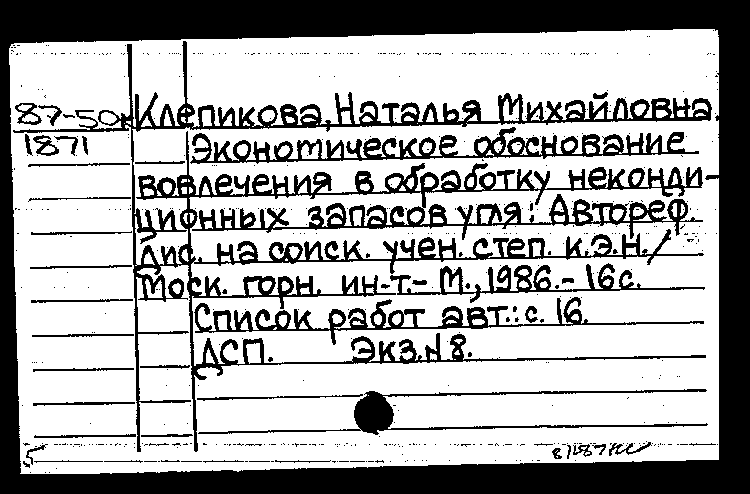 87-50к Клепикова, Наталья Михайловна.
1871 Экономическое обоснование
вовлечения в обработку неконди-
ционных запасов угля: Автореф.
Дис. на соиск. учен. степ. к.э.н./
Моск. горн. ин-т.- М., 1986.- 16с.
Список работ авт.: с. 16.
ДСП. Экз.N8.
5